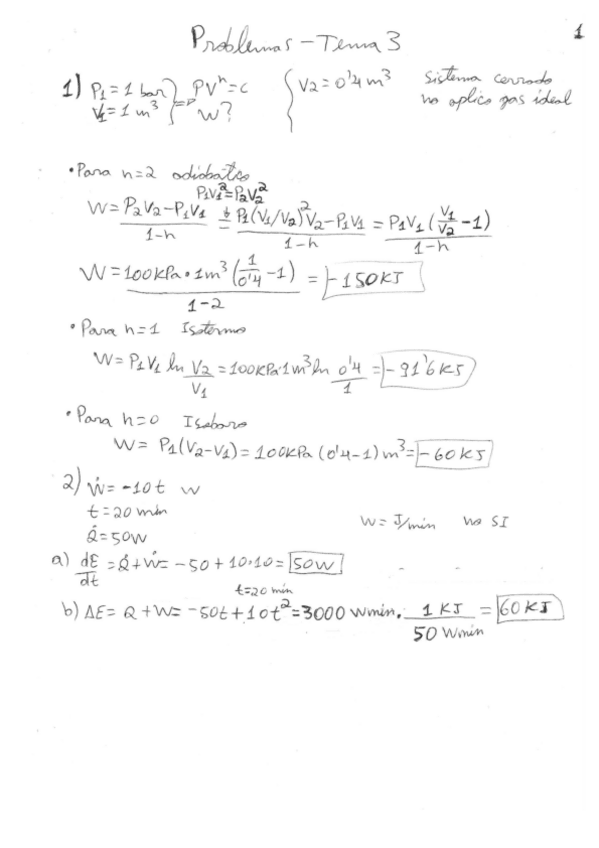 1
Problemas - Tema 3
1) P1 = 1 bar } => PV^n = c { V2 = 0'4 m^3 Sistema cerrado
V1 = 1 m^3 W? no aplico gas ideal
• Para n=2 adiobatco
P1V1^2 = P2V2^2
W = (P2V2 - P1V1)/(1-n) = (P1(V1/V2)^2 V2 - P1V1)/(1-n) = P1V1(V1/V2 - 1)/(1-n)
W = 100kPa · 1m^3 (1/0'4 - 1)/(1-2) = -150KJ
• Para n=1 Isotermo
W = P1V1 ln V2/V1 = 100KPa·1m^3 ln 0'4/1 = -91'6 KJ
• Para n=0 Isobaro
W = P1(V2-V1) = 100KPa (0'4-1) m^3 = -60KJ
2) Ẇ = -10t W
t = 20 min W = J/min no SI
Q̇ = 50W
a) dE/dt = Q̇ + Ẇ = -50 + 10·10 = 50W
t=20 min
b) ΔE = Q + W = -50t + 10t^2 = 3000 Wmin. 1 KJ/50 Wmin = 60KJ